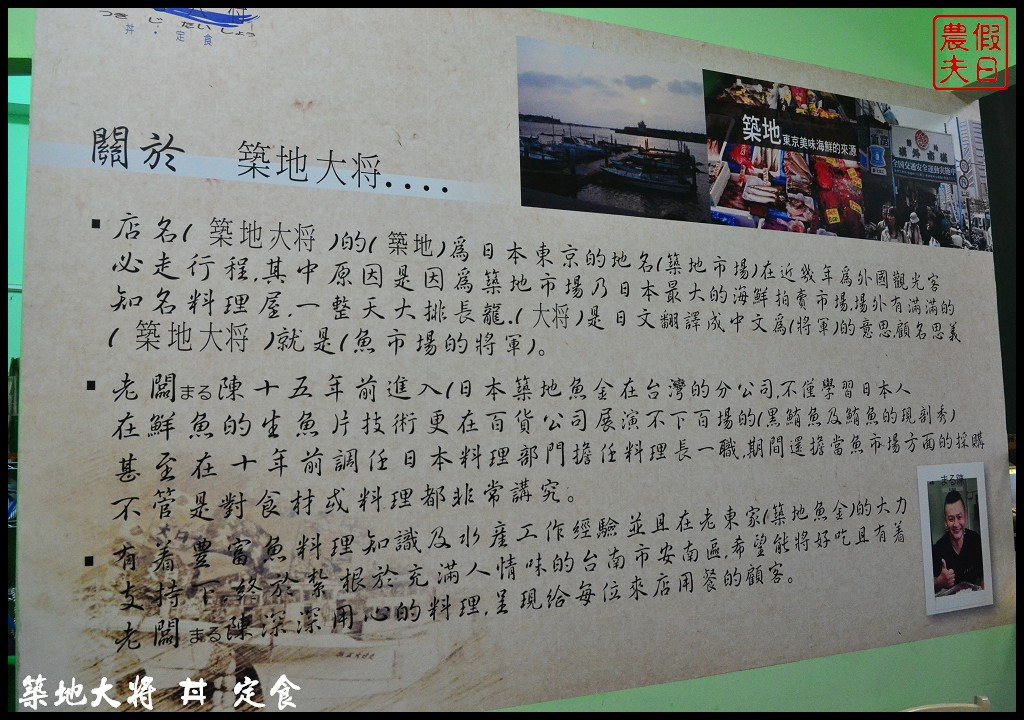 つきじ たいしょう
丼・定食
假日
農夫
築地 東京美味海鮮的來源
關於 築地大将....
店名( 築地大将 )的(築地)為日本東京的地名(築地市場)在近幾年為外國觀光客
必走行程,其中原因是因為築地市場乃日本最大的海鮮拍賣市場,場外有滿滿的
知名料理屋,一整天大排長龍.(大将)是日文翻譯成中文為(將軍)的意思,顧名思義
( 築地大将 )就是(魚市場的將軍)。
老闆まる陳十五年前進入(日本築地魚金在台灣的分公司,不僅學習日本人
在鮮魚的生魚片技術更在百貨公司展演不下百場的(黑鮪魚及鮪魚的現剖秀)
甚至在十年前調任日本料理部門擔任料理長一職,期間還擔當魚市場方面的採購
不管是對食材或料理都非常講究。
有着豐富魚料理知識及水產工作經驗並且在老東家(築地魚金)的大力
支持下,終於紮根於充滿人情味的台南市安南區,希望能將好吃且有着
老闆まる陳深深用心的料理,呈現給每位來店用餐的顧客。
まる陳
築地大将 丼 定食